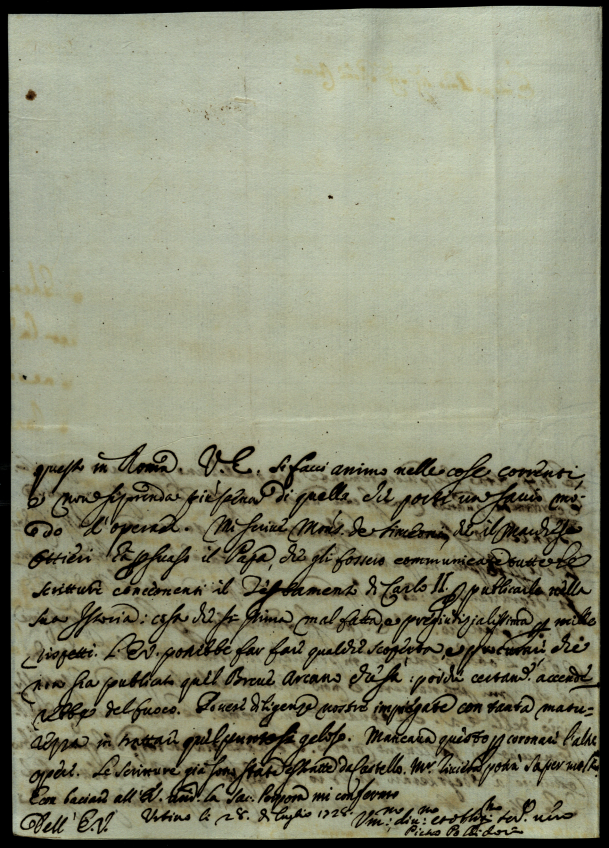 questo in Roma. V. E. si facci animo nelle cose correnti
e non si prenda più pena di quella che porti un savio mo-
do d'operar. Mi scrive Mons. de Simeoni, che il march.
Ottieri ha persuaso il Papa, che gli fossero communicate tutte le
scritture concernenti il Testamento di Carlo II. publicarlo nella
sua Istoria: cosa che se prima, mal fatta, e pregiudizialissima mille
rispetti. L'E.V. potrebbe far fare qualche scoperta e procurare che
non sia publicato quel Breve Arcano che sa: poiche certam. accende-
rebbe del fuoco. Povere diligenze nostre impiegate con tanta matu-
rezza in trattar quel punto sì geloso. Mancava questo coronare l'altre
opere. Le scritture già sono state estratte da Castello. Mr. potrà saper
Con baciare all'E.V. la Sac. Porpora mi confermo
Dell' E.V.
Urbino li 28. di luglio 1728.
Um.mo div.mo ser.
Pietro Pollidori